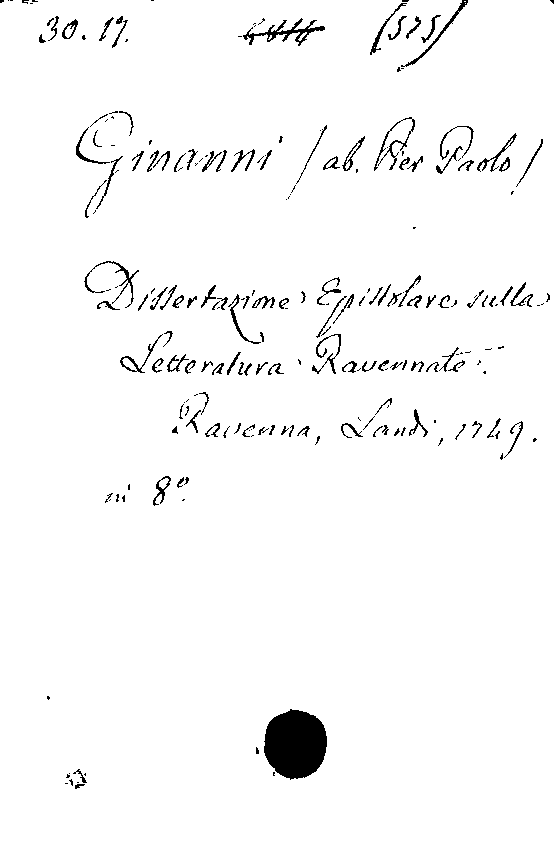 30.17. (575)
Ginanni / ab. Pier Paolo /
Dissertazione Epistolare sulla
Letteratura Ravennate.
Ravenna, Landi, 1749.
in 8º.